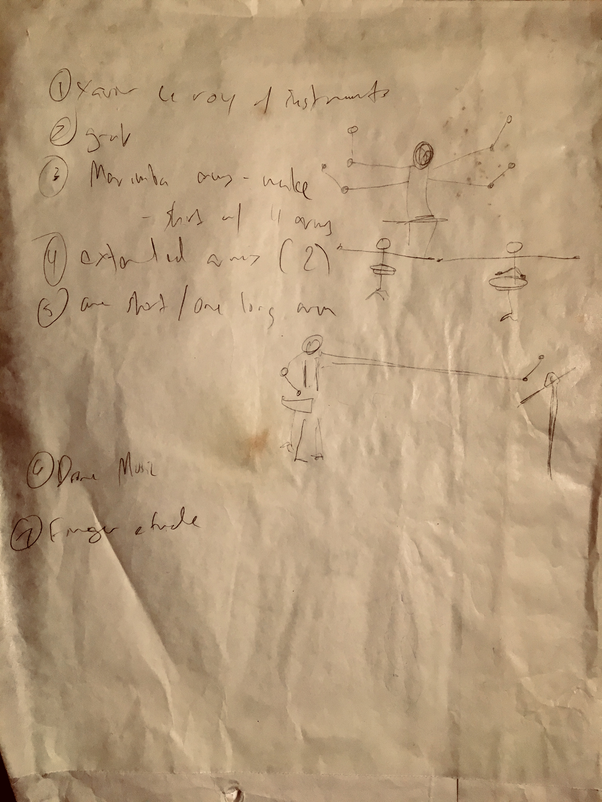 ① Xavier le roy of instruments
②
③ Marimba arms - make
- shirts w/ 4 arms
④ extended arms (2)
⑤ one short / one long arm
⑥ Music
⑦ Finger etude